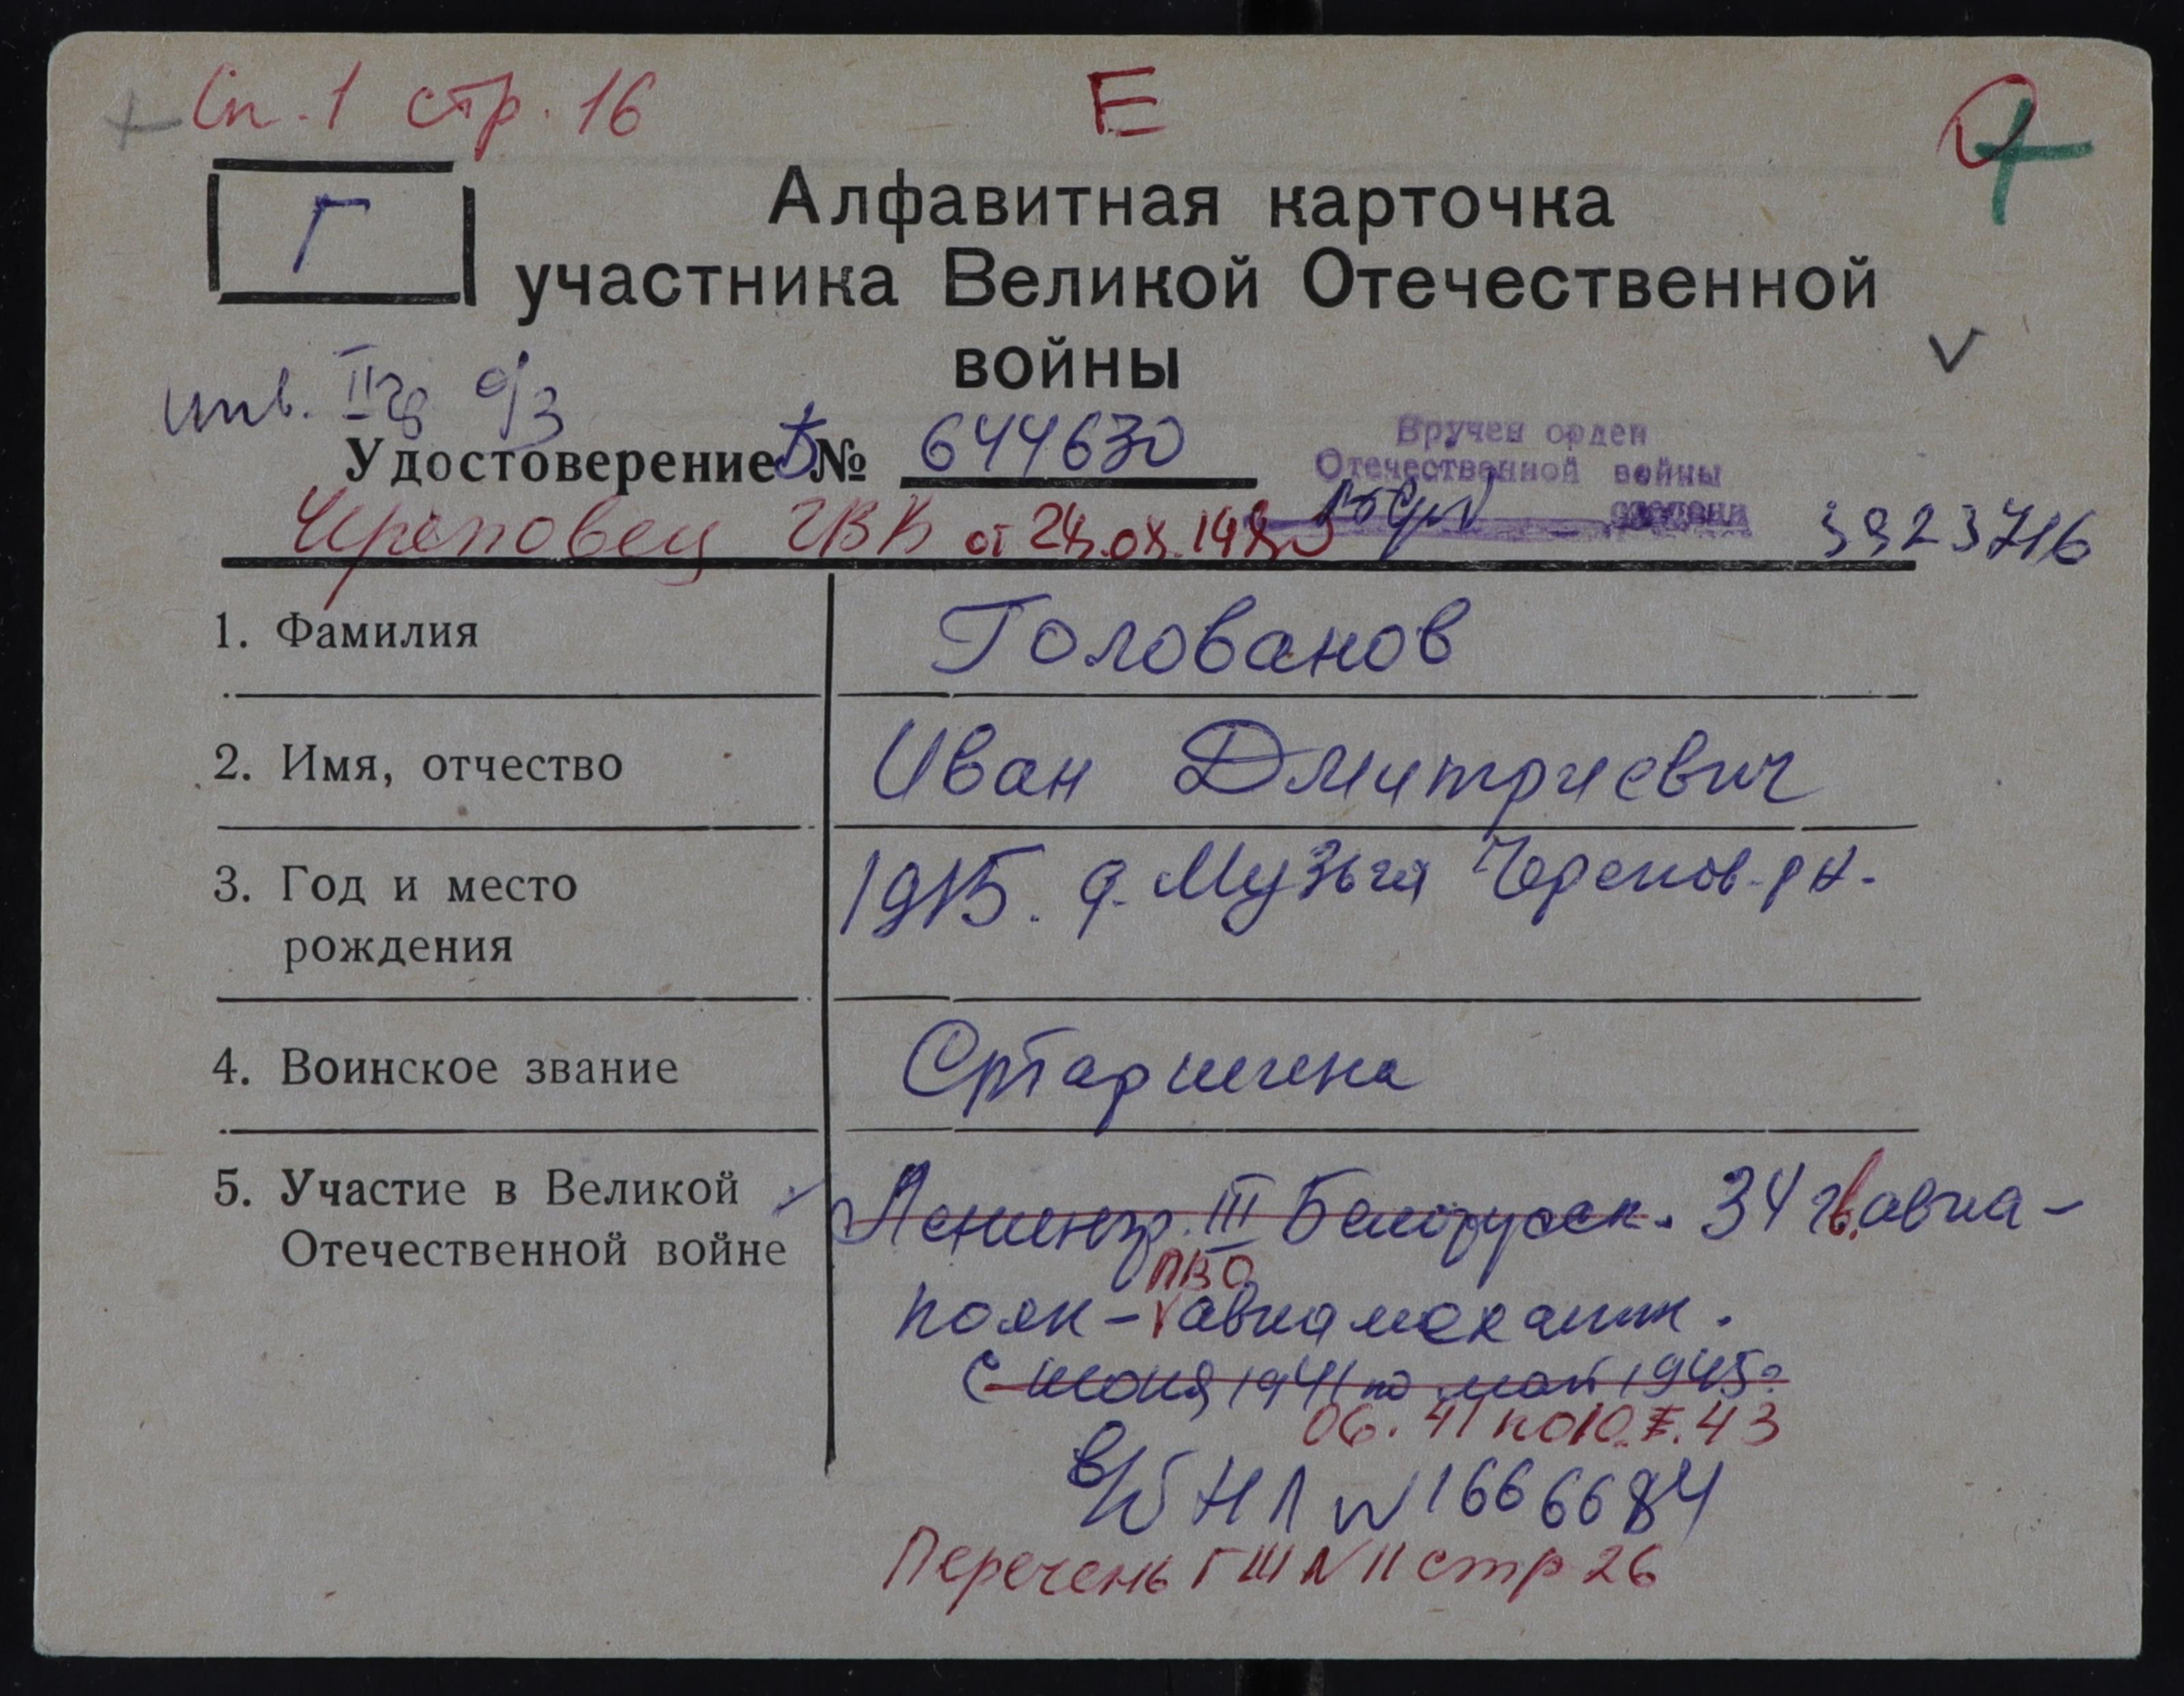 Сп. 1 стр. 16
Е
Г
Алфавитная карточка
участника Великой Отечественной
войны
инв. II гр о/з
Удостоверение Б № 644630
Вручен орден
Отечественной войны
степени
Череповец ГВК от 3923716
1. Фамилия Голованов
2. Имя, отчество Иван Дмитриевич
3. Год и место 1915. д. Музьга Черепов. р-н.
рождения
4. Воинское звание Старшина
5. Участие в Великой Ленингр. III Белорусск. 34 гв. авиа-
Отечественной войне
ПВО
полк - авиамеханик.
С июня 1941 по май 1945г
06. 41 по 10.X.43
в/б НЛ № 1666684
Перечень ГШ N II стр 26